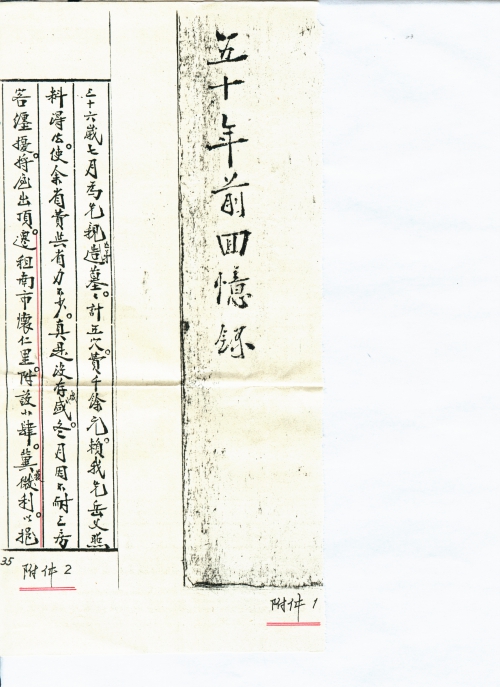 五十年前回憶錄
附件1
三十六歲七月為先親造墓。計五穴費千餘元。賴我先岳父照
料得法使余省費與有力不少。真是沒存感。冬月因不耐三房
苦纏擾將仝出頂。遷租南市懷仁里。附設小肆。冀微利以挹
35
附件2